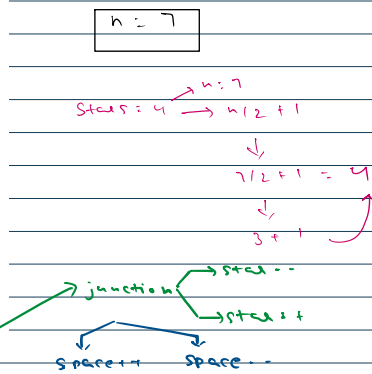 n = 7
n = 7
stars = 4 → n/2 + 1
7/2 + 1 = 4
3 + 1
→ star --
junction
→ star ++
space++ space--